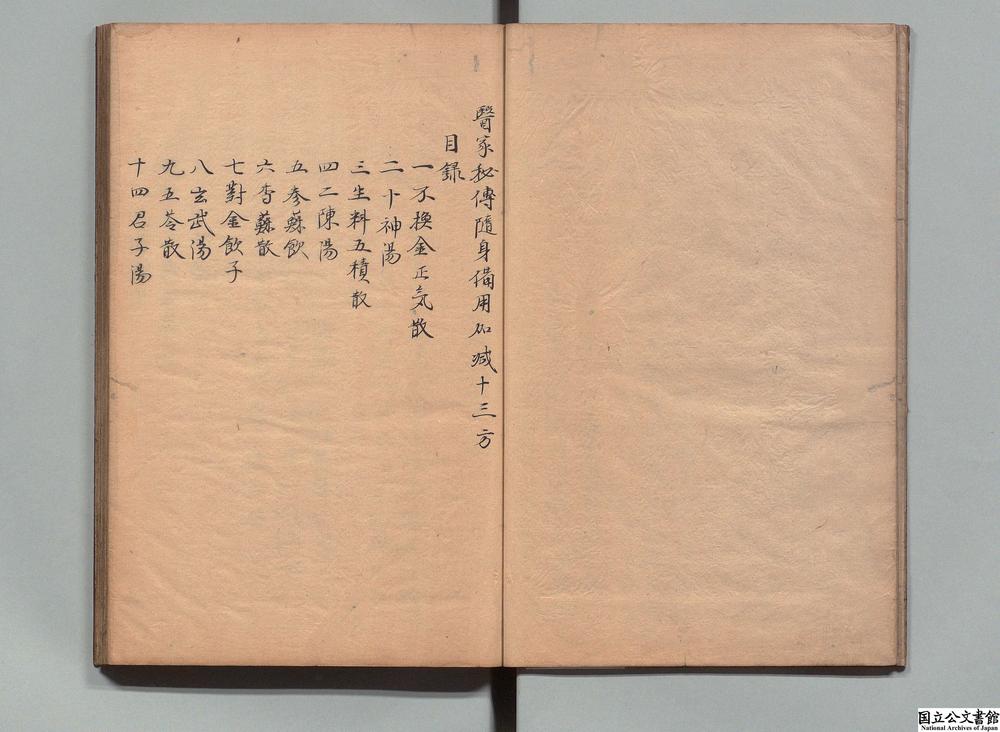 醫家秘傳隨身備用加減十三方
目錄
一不換金正気散
二十神湯
三生料五積散
四二陳湯
五參蘇飲
六香蘇散
七對金飲子
八玄武湯
九五苓散
十四君子湯
国立公文書館
National Archives of Japan